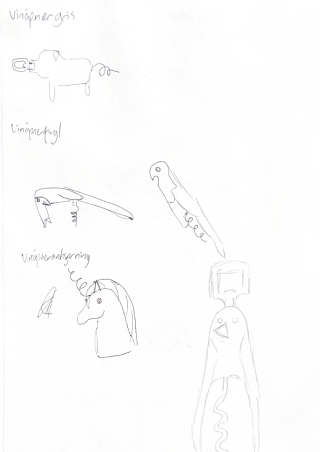 Vinåpner gris
Vinåpnerfugl
Vinåpnerenhjørning